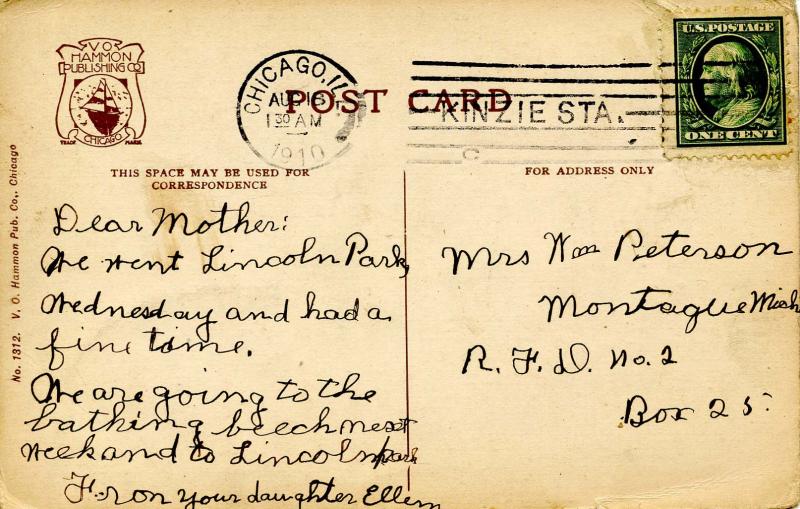 V.O.
HAMMON
PUBLISHING CO
TRADE CHICAGO MARK
CHICAGO, ILL
AUG 16
1 30 AM
1910
POST CARD
KINZIE STA.
C
U.S. POSTAGE
ONE CENT
THIS SPACE MAY BE USED FOR
CORRESPONDENCE
FOR ADDRESS ONLY
No. 1312. V. O. Hammon Pub. Co., Chicago
Dear Mother:
We went Lincoln Park,
Wednesday and had a
fine time.
We are going to the
bathing beech next
week and to Lincoln park
From your daughter Ellen
Mrs Wm Peterson
Montague Mich
R. F. D. No. 2
Box 25.